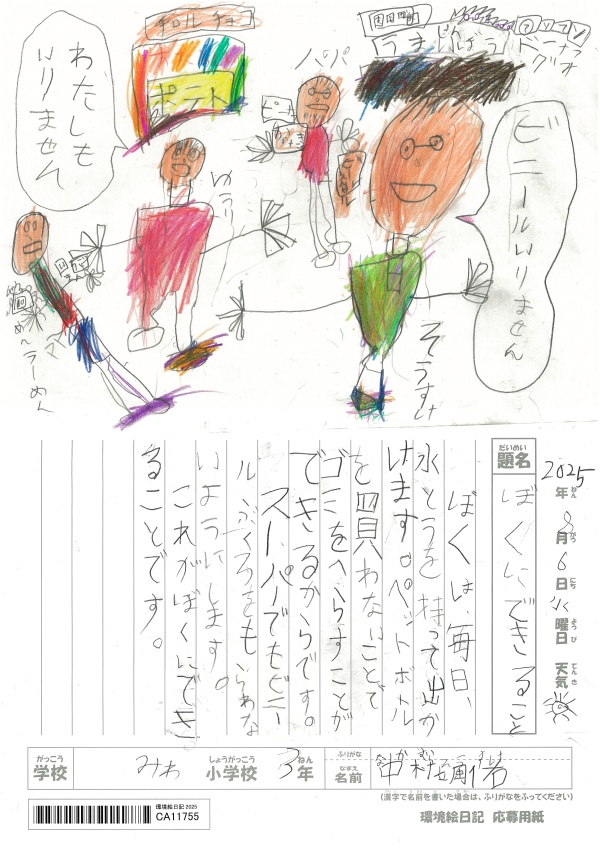 チロルチョ
ポテト
わたしも
いりません
パパ
うまいぼう
ドーナツ
グミ
ビニールいりません
ゆうり
ママ
めんらーめん
そうすけ
2025年8月6日 水曜日 天気
ねん
がつ
にち
ようび
てんき
だいめい
題名
ぼくにできること
ぼくは、毎日、
水とうを持って出か
けます。ペットボトル
を買わないことで
ゴミをへらすことが
できるからです。
スーパーでもビニー
ルぶくろをもらわな
いようにします。
これがぼくにでき
ることです。
がっこう
学校
みわ
しょうがっこう
小学校
3年
ねん
ふりがな
なかむら
なまえ
名前
中村
(漢字で名前を書いた場合は、ふりがなをふってください)
環境絵日記 2025
CA11755
環境絵日記 応募用紙